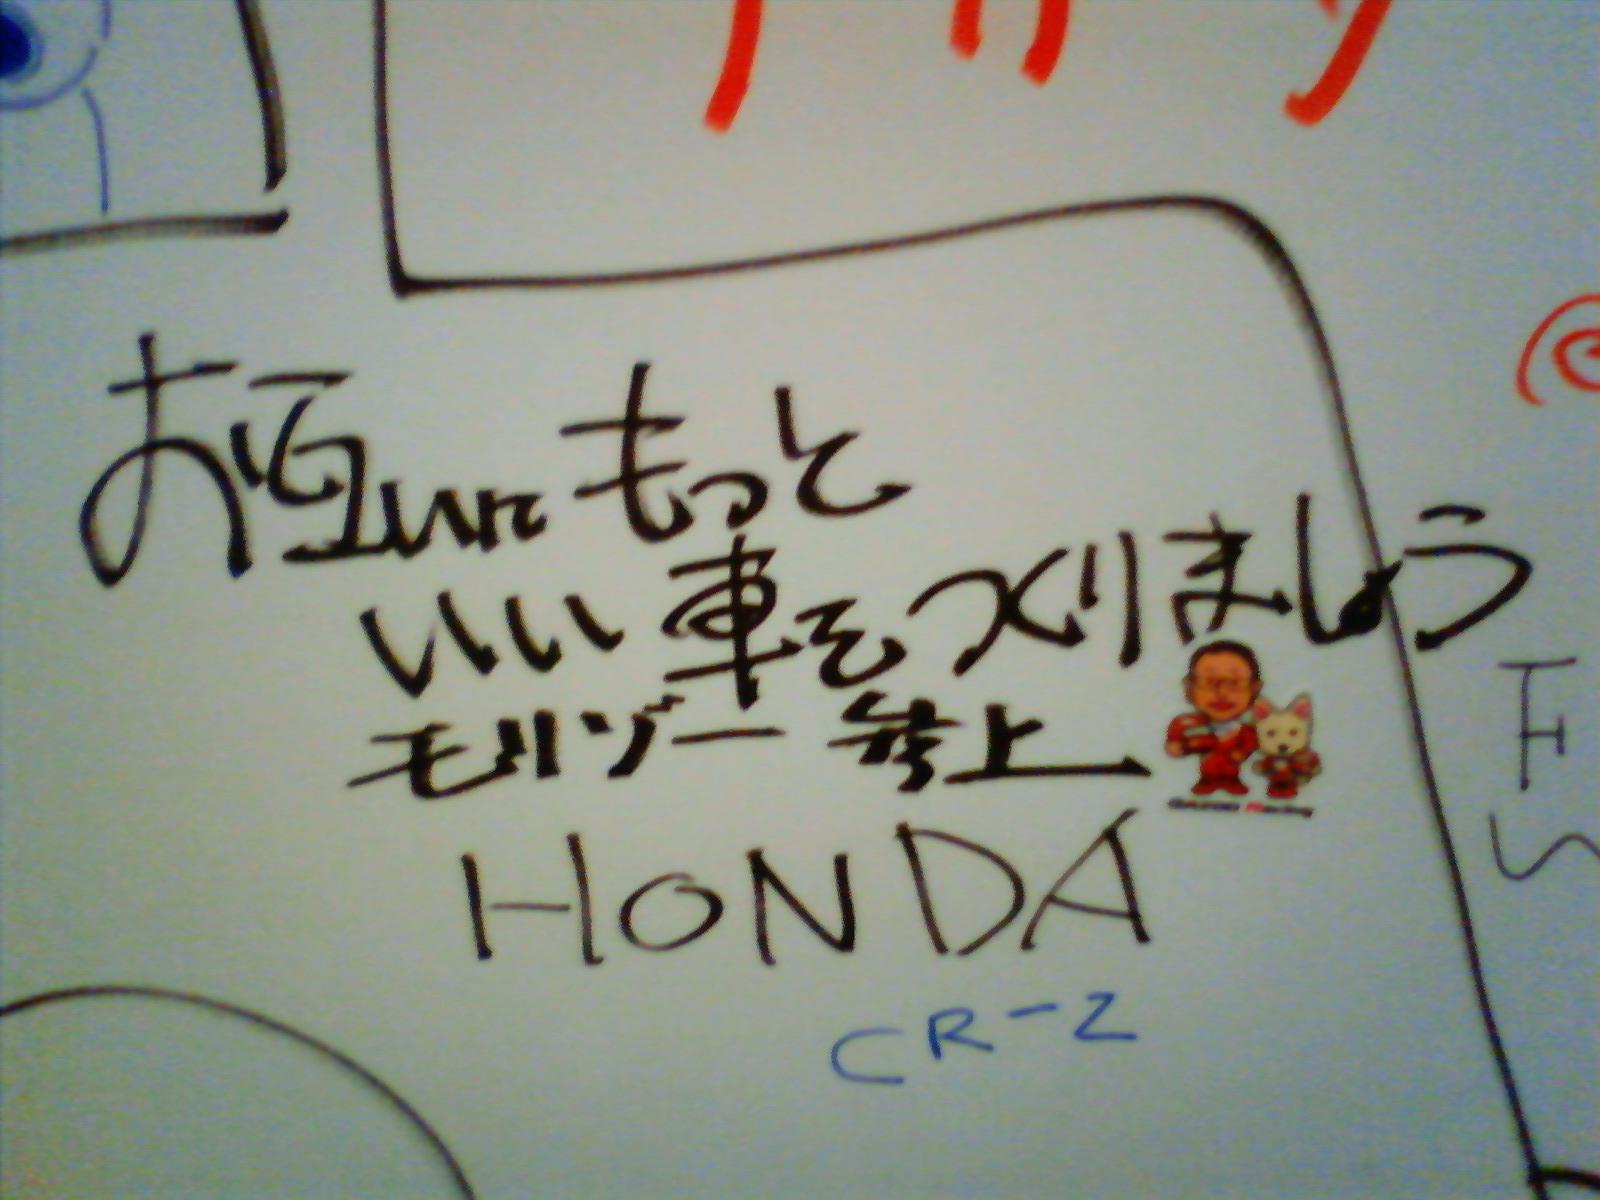 お互いにもっと
いい車をつくりましょう
モリゾー参上
HONDA
CR-Z